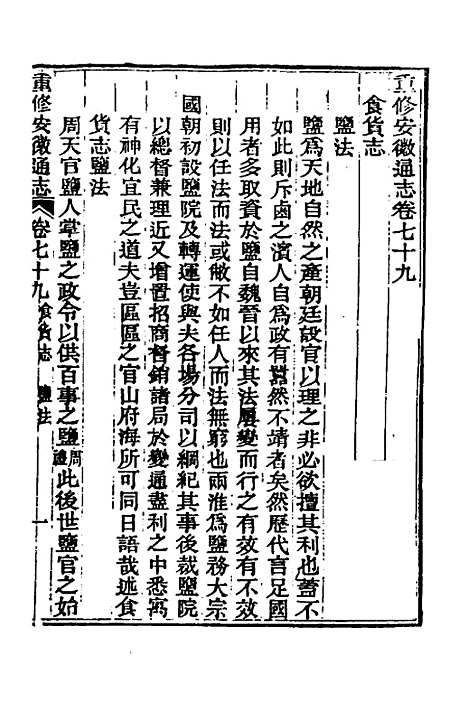 重修安徽通志卷七十九
食貨志
鹽法
鹽爲天地自然之產朝廷設官以理之非必欲擅其利也蓋不
如此則斥鹵之濱人自爲政有囂然不靖者矣然歷代言足國
用者多取資於鹽自魏晉以來其法屢變而行之有效有不效
則以任法而法或敝不如任人而法無窮也兩淮爲鹽務大宗
國朝初設鹽院及轉運使與夫各場分司以綱紀其事後裁鹽院
以總督兼理近又增置招商督銷諸局於變通盡利之中悉寓
有神化宜民之道夫豈區區之官山府海所可同日語哉述食
貨志鹽法
周天官鹽人掌鹽之政令以供百事之鹽周禮此後世鹽官之始
重修安徽通志 卷七十九 食貨志 鹽法 一